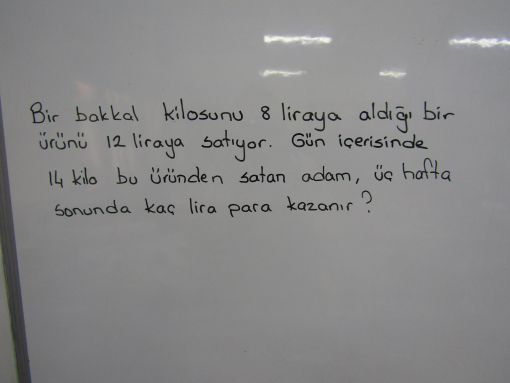 Bir bakkal kilosunu 8 liraya aldığı bir
ürünü 12 liraya satıyor. Gün içerisinde
14 kilo bu üründen satan adam, üç hafta
sonunda kaç lira para kazanır?